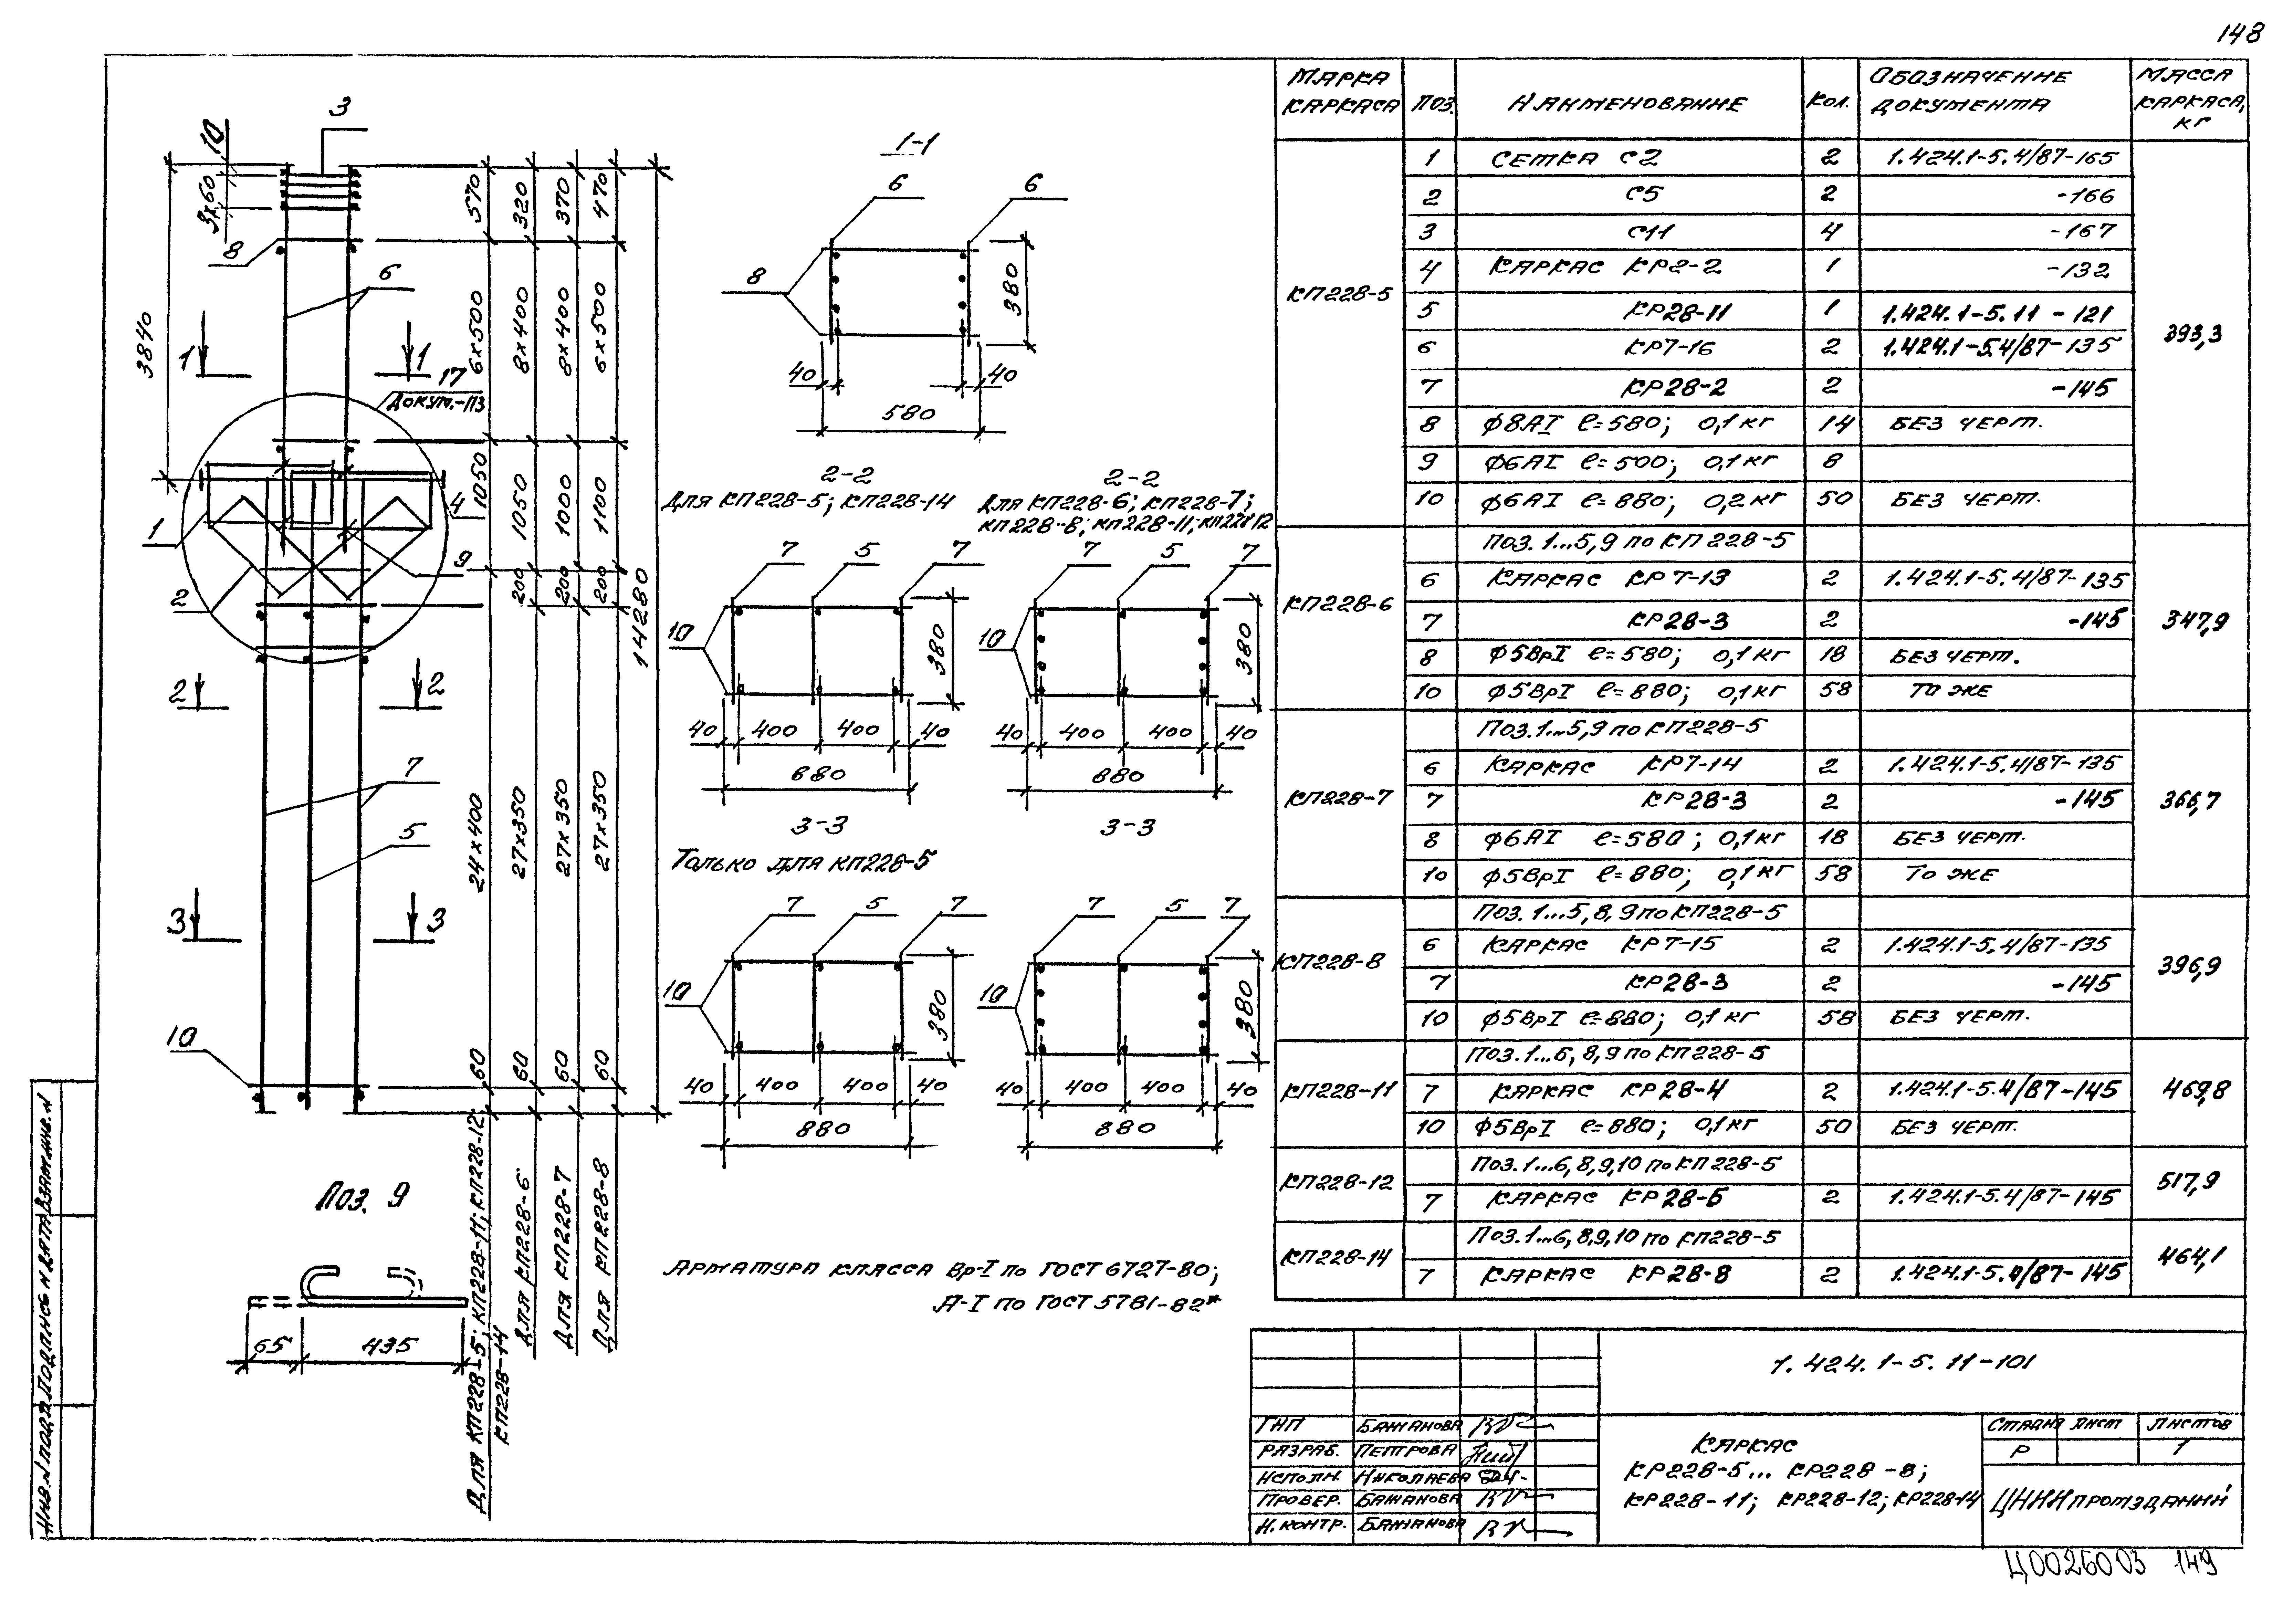 148
3
10
3х60
8
6
3840
1
1
17
Докум.-ПЗ
1
2
4
9
2
2
7
5
3
3
10
570
6х500
1050
24х400
60
320
8х400
1050
200
27х350
60
370
8х400
1000
200
27х350
60
470
6х500
1100
200
27х350
60
14280
Для КП228-5; КП228-11; КП228-12;
КП228-14
Для КП228-6
Для КП228-7
Для КП228-8
Поз. 9
65
435
1-1
6
6
8
380
40
40
580
2-2
Для КП228-5; КП228-14
7
5
7
10
380
40
400
400
40
880
2-2
Для КП228-6; КП228-7;
КП228-8; КП228-11; КП228-12
7
5
7
10
380
40
400
400
40
880
3-3
Только для КП228-5
7
5
7
10
380
40
400
400
40
880
3-3
7
5
7
10
380
40
400
400
40
880
Арматура класса Вр-I по ГОСТ 6727-80;
А-I по ГОСТ 5781-82*
Марка каркаса Поз. Наименование Кол. Обозначение документа Масса каркаса, кг
КП228-5 393,3
1 Сетка С2 2 1.424.1-5.4/87-165
2 С5 2 -166
3 С11 4 -167
4 Каркас КР2-2 1 -132
5 КР28-11 1 1.424.1-5.11-121
6 КР7-16 2 1.424.1-5.4/87-135
7 КР28-2 2 -145
8 ф8АI ℓ=580; 0,1кг 14 Без черт.
9 ф6АI ℓ=500; 0,1кг 8
10 ф6АI ℓ=880; 0,2кг 50 Без черт.
КП228-6 347,9
Поз. 1...5,9 по КП228-5
6 Каркас КР7-13 2 1.424.1-5.4/87-135
7 КР28-3 2 -145
8 ф5ВрI ℓ=580; 0,1кг 18 Без черт.
10 ф5ВрI ℓ=880; 0,1кг 58 То же
КП228-7 366,7
Поз. 1...5,9 по КП228-5
6 Каркас КР7-14 2 1.424.1-5.4/87-135
7 КР28-3 2 -145
8 ф6АI ℓ=580; 0,1кг 18 Без черт.
10 ф5ВрI ℓ=880; 0,1кг 58 То же
КП228-8 396,9
Поз. 1...5,8,9 по КП228-5
6 Каркас КР7-15 2 1.424.1-5.4/87-135
7 КР28-3 2 -145
10 ф5ВрI ℓ=880; 0,1кг 58 Без черт.
КП228-11 469,8
Поз. 1...6,8,9 по КП228-5
7 Каркас КР28-4 2 1.424.1-5.4/87-145
10 ф5ВрI ℓ=880; 0,1кг 50 Без черт.
КП228-12 517,9
Поз. 1...6,8,9,10 по КП228-5
7 Каркас 2 1.424.1-5.4/87-145
КП228-14 464,1
Поз. 1...6,8,9,10 по КП228-5
7 Каркас КР28-8 2 1.424.1-5.4/87-145
1.424.1-5.11-101
ГИП Бажанова
Разраб. Петрова
Исполн. Николаева
Провер. Бажанова
Н.контр. Бажанова
Каркас
КР228-5... КР228-8;
КР228-11; КР228-12; КР228-14
Стадия Лист Листов
Р 1
ЦНИИпромзданий
Инв.№ подл. Подпись и дата Взам.инв.№
Ц00260 03 149